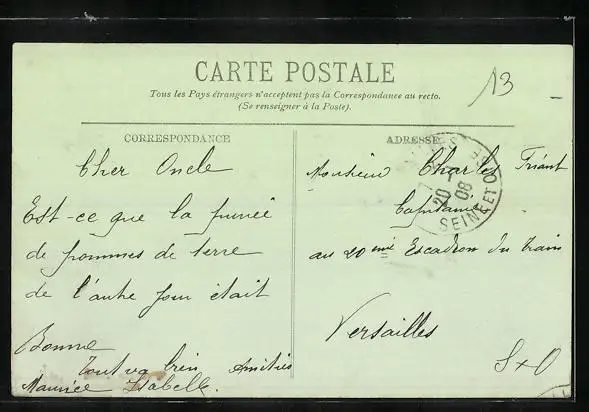 13
CARTE POSTALE
Tous les Pays étrangers n'acceptent pas la Correspondance au recto.
(Se renseigner à la Poste).
CORRESPONDANCE
Cher Oncle
Est-ce que la purée
de pommes de terre
de l'autre jour était
Bonne
Tout va bien Amitiés
Maurice Isabelle.
ADRESSE
Monsieur Charles Triant
Capitaine
au 20me Escadron du Train
Versailles
S & O
20
08
SEINE ET O